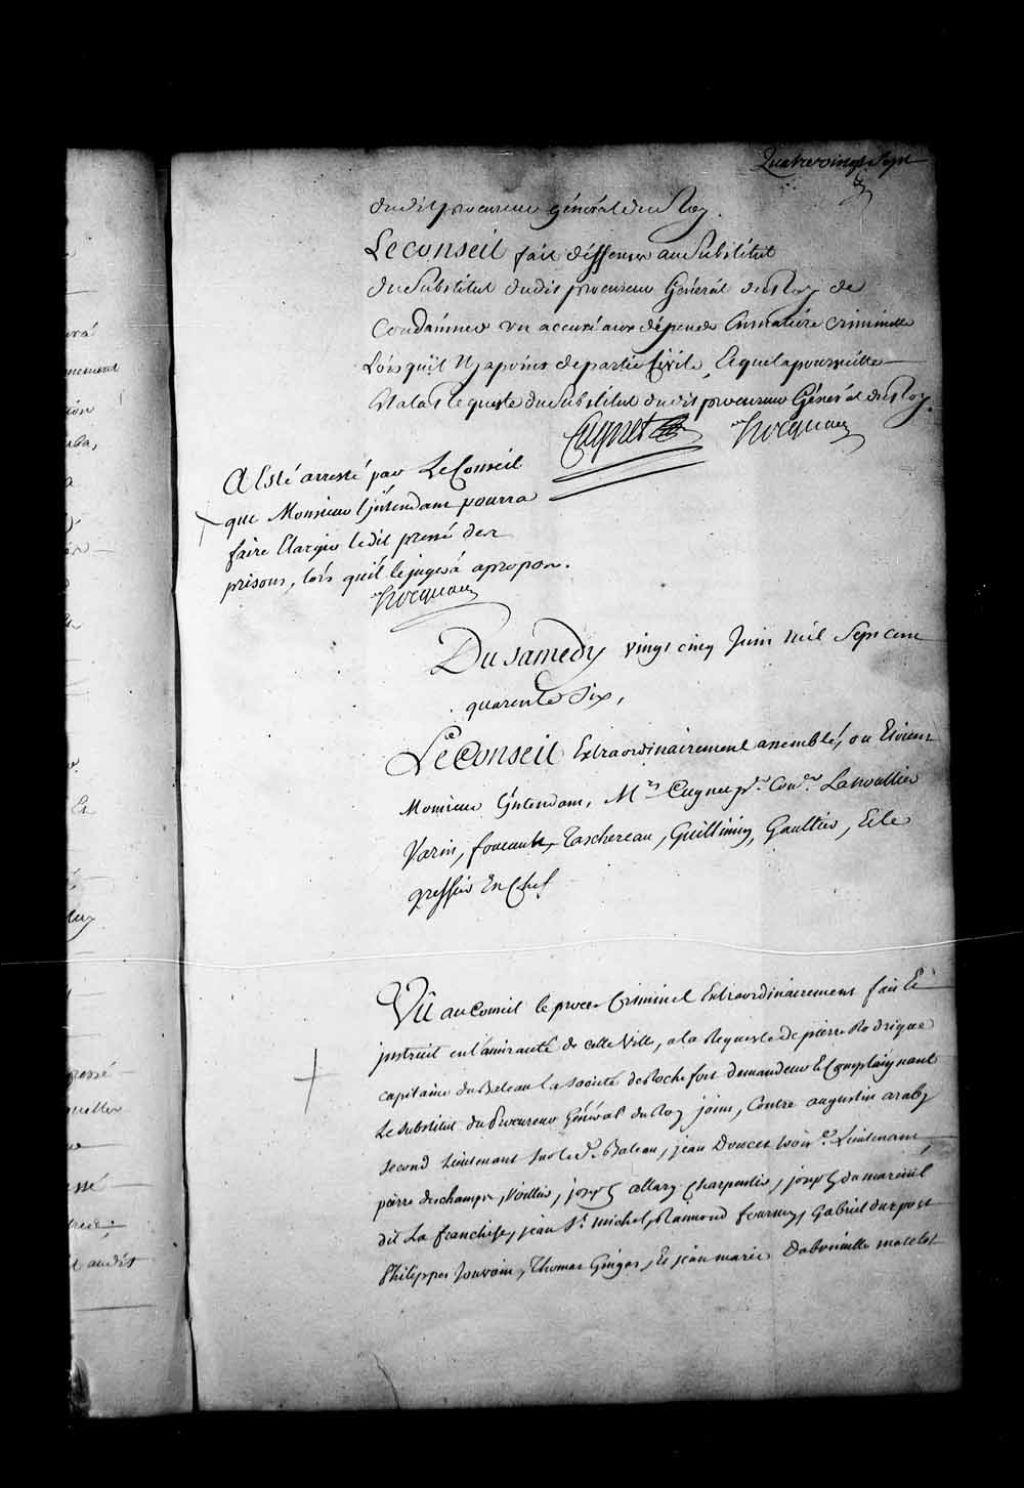 Quatrevingt Sept
dudit procureur général du Roy.
Le Conseil fait déffenses au Substitut
du Substitut dudit procureur Général du Roy de
Condamner un accusé aux dépends En matiere criminelle
Lors qu'il Ny a point de partie Civile, Et que la poursuitte
Est a la Requeste du Substitut dudit procureur Général du Roy.
Cugnet Hocquart
A Esté arresté par Le Conseil
que Monsieur l'jntendant pourra
faire Elargir ledit pressé des
prisons, lors qu'il le jugera apropos.
Hocquart
Du Samedy vingt cinq Juin mil Sept cent
quarente Six,
Le Conseil Extraordinairement assemblé, ou Etoient
Monsieur l'jntendant, Mrs Cugnet pr. Coner Lanoullier
Varin, foucault, Taschereau, Guillimin, Gaultier, Et le
greffier En Chef
Vû au Conseil le procès Criminel Extraordinairement fait Et
jnstruit en l'amirauté de cette Ville, a la Requeste de pierre Rodrigue
capitaine du Bateau la Societé de Rochefort demandeur Et Complaignant
Le Substitut du Procureur Général du Roy joint, Contre augustin araby
second Lieutenant sur le d. Bateau, jean Doucet Lieutenant,
pierre deschamps, Voillier, joseph allary Charpentier, joseph dumareuil
dit La franchise, jean St. michel, Raimond fournez, Gabriel
Philippes Jouvain, Thomas Gingas, Et jean marie matelot